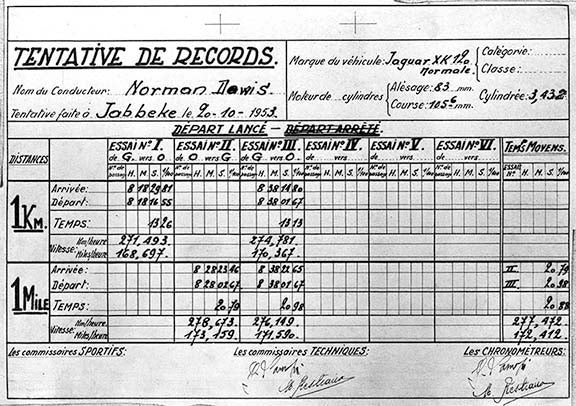 TENTATIVE DE RECORDS.
Nom du Conducteur: Norman Dewis
Tentative faite à Jabbeke le 20-10-1953.
Marque du véhicule: Jaguar XK 120
normale.
Catégorie:
Classe:
Moteur de cylindres
Alésage: 83 mm.
Course: 105⁶ mm.
Cylindrée: 3,432
DÉPART LANCÉ – DÉPART ARRÊTÉ.
DISTANCES ESSAI Nº I. ESSAI Nº II. ESSAI Nº III. ESSAI Nº IV. ESSAI Nº V. ESSAI Nº VI. TEMPS MOYENS.
de G. vers O. de O vers G. de G. vers O. de vers de vers de vers
Nº de passag. H. M. S. 1/100 Nº de passag. H. M. S. 1/100 Nº de passag. H. M. S. 1/100 Nº de passag. H. M. S. 1/100 Nº de passag. H. M. S. 1/100 Nº de passag. H. M. S. 1/100 ESSAI Nº H. M. S. 1/100
1 KM.
Arrivée: 8 18 29 81 8 38 14 80
Départ: 8 18 16 55 8 38 01 67
TEMPS: 13 26 13 13
Vitesse: Km/heure 271,493. 274,181.
Miles/heure 168,697. 170,367.
1 MILE
Arrivée: 8 28 23 46 8 38 22 65 II 20 79
Départ: 8 28 02 67 8 38 01 67 III 20 98
TEMPS: 20 79 20 98 20 88
Vitesse: Km/heure. 278,673. 276,149. 277,472.
Miles/heure 173,159. 171,590. 172,412.
Les commissaires SPORTIFS: Les commissaires TECHNIQUES: Les CHRONOMÉTREURS: